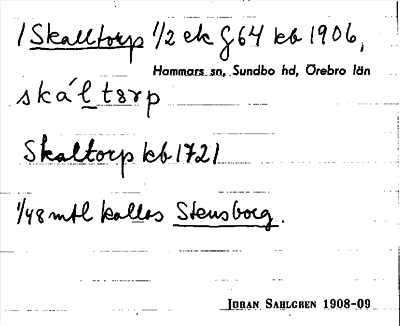 / Skalltorp 1/2 ek G64 kb 1906,
Hammars sn, Sundbo hd, Örebro län
skál torp
Skaltorp kb 1721
1/48 mtl kallas Stensborg.
JÖRAN SAHLGREN 1908-09